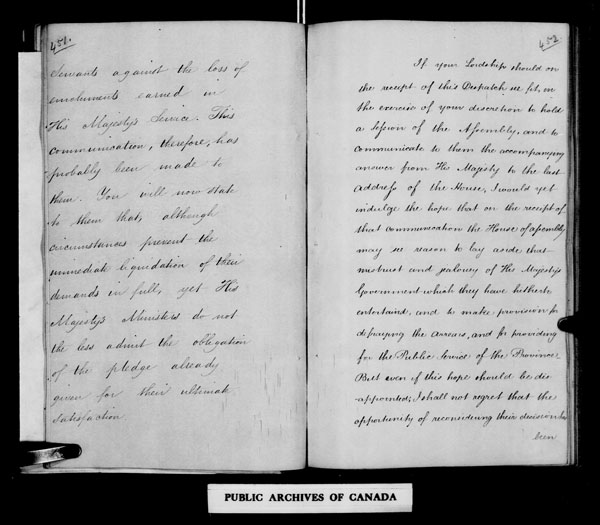 451.
Servants against the loss of
emoluments earned in
His Majesty's Service. This
communication, therefore, has
probably been made to
them. You will now state
to them that, although
circumstances prevent the
immediate liquidation of their
demands in full, yet His
Majesty's Ministers do not
the less admit the obligation
of the pledge already
given for their ultimate
satisfaction
452
If your Lordship should on
the receipt of this Despatch see fit, in
the exercise of your discretion to hold
a Session of the Assembly, and to
communicate to them the accompanying
answer from His Majesty to the last
address of the House, I would yet
indulge the hope that on the receipt of
that communication the House of Assembly
may see reason to lay aside that
mistrust and jealousy of His Majesty's
Government which they have hitherto
entertained, and to make provision for
defraying the arrears, and for providing
for the Public Service of the Province.
But even if this hope should be dis-
appointed, I shall not regret that the
opportunity of reconsidering their decision has
been
PUBLIC ARCHIVES OF CANADA